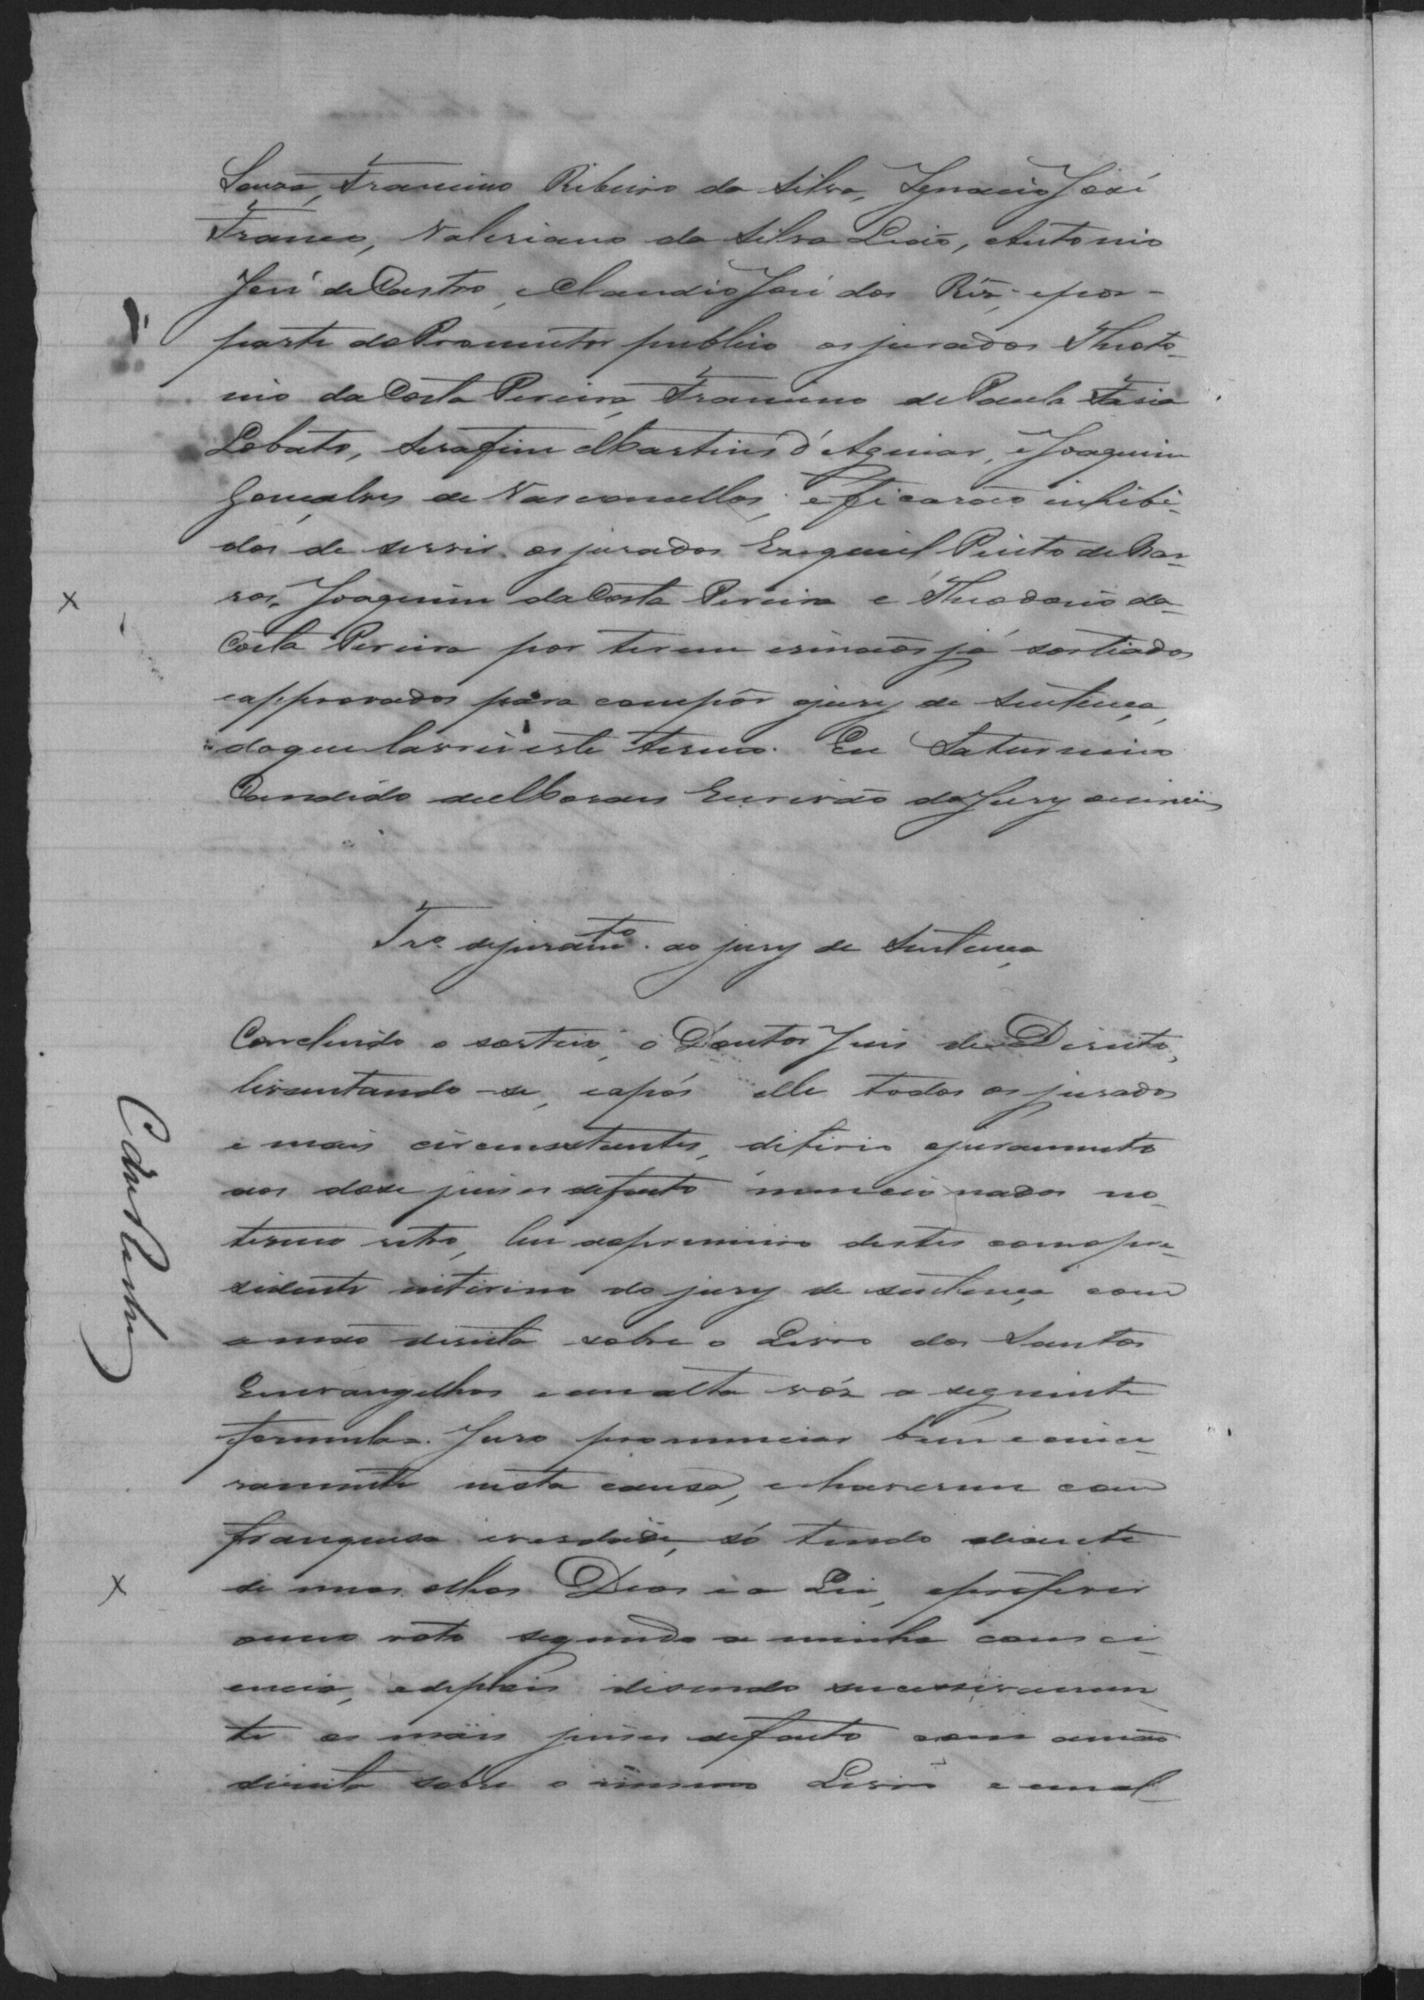 Souza, Francisco Ribeiro da Silva, Ignacio José
Franco, Valeriano da Silva Leão, Antonio
José de Castro, e Claudio José dos Rs; e por-
parte do Promutor publico os jurados Theoto-
nio da Costa Pereira, Francisco de Paula Faria
Lobato, Serafim Martins d'Aguiar, e Joaquim
Gonçalves de Vasconcellos; e ficarão inhibi-
dos de servir os jurados Ezequiel Pinto de Bar-
ros, Joaquim da Costa Pereira e Theodorio da
Costa Pereira por terem irmãos já sortiados
e approvados para compôr o jury de sentença,
do que lavrei este termo. Eu Saturnino
Candido de Moraes Escrivão do Jury escrevi
Tro. de juramto. ao jury de Sentença
Concluido o sorteio, o Doutor Juis de Direito,
levantando-se, e após elle todos os jurados
e mais circunstantes, diferio o juramento
aos dose juises de facto mencionados no
termo retro, leu o primeiro destes como pre-
sidente interino do jury de sentença com
a mão direita sobre o Livro dos Santos
Envangelhos e em alta vóz a seguinte
formula. Juro pronunciar bem e since-
ramente nesta causa, e haverme com
franquesa e verdade, só tendo diante
de meus olhos Deos e a Lei, e proferir
o meu voto segundo a minha consci-
encia, e depois disendo sucessivamen
te os mais juises de facto com a mão
direita sobre o mesmo Livro e em al